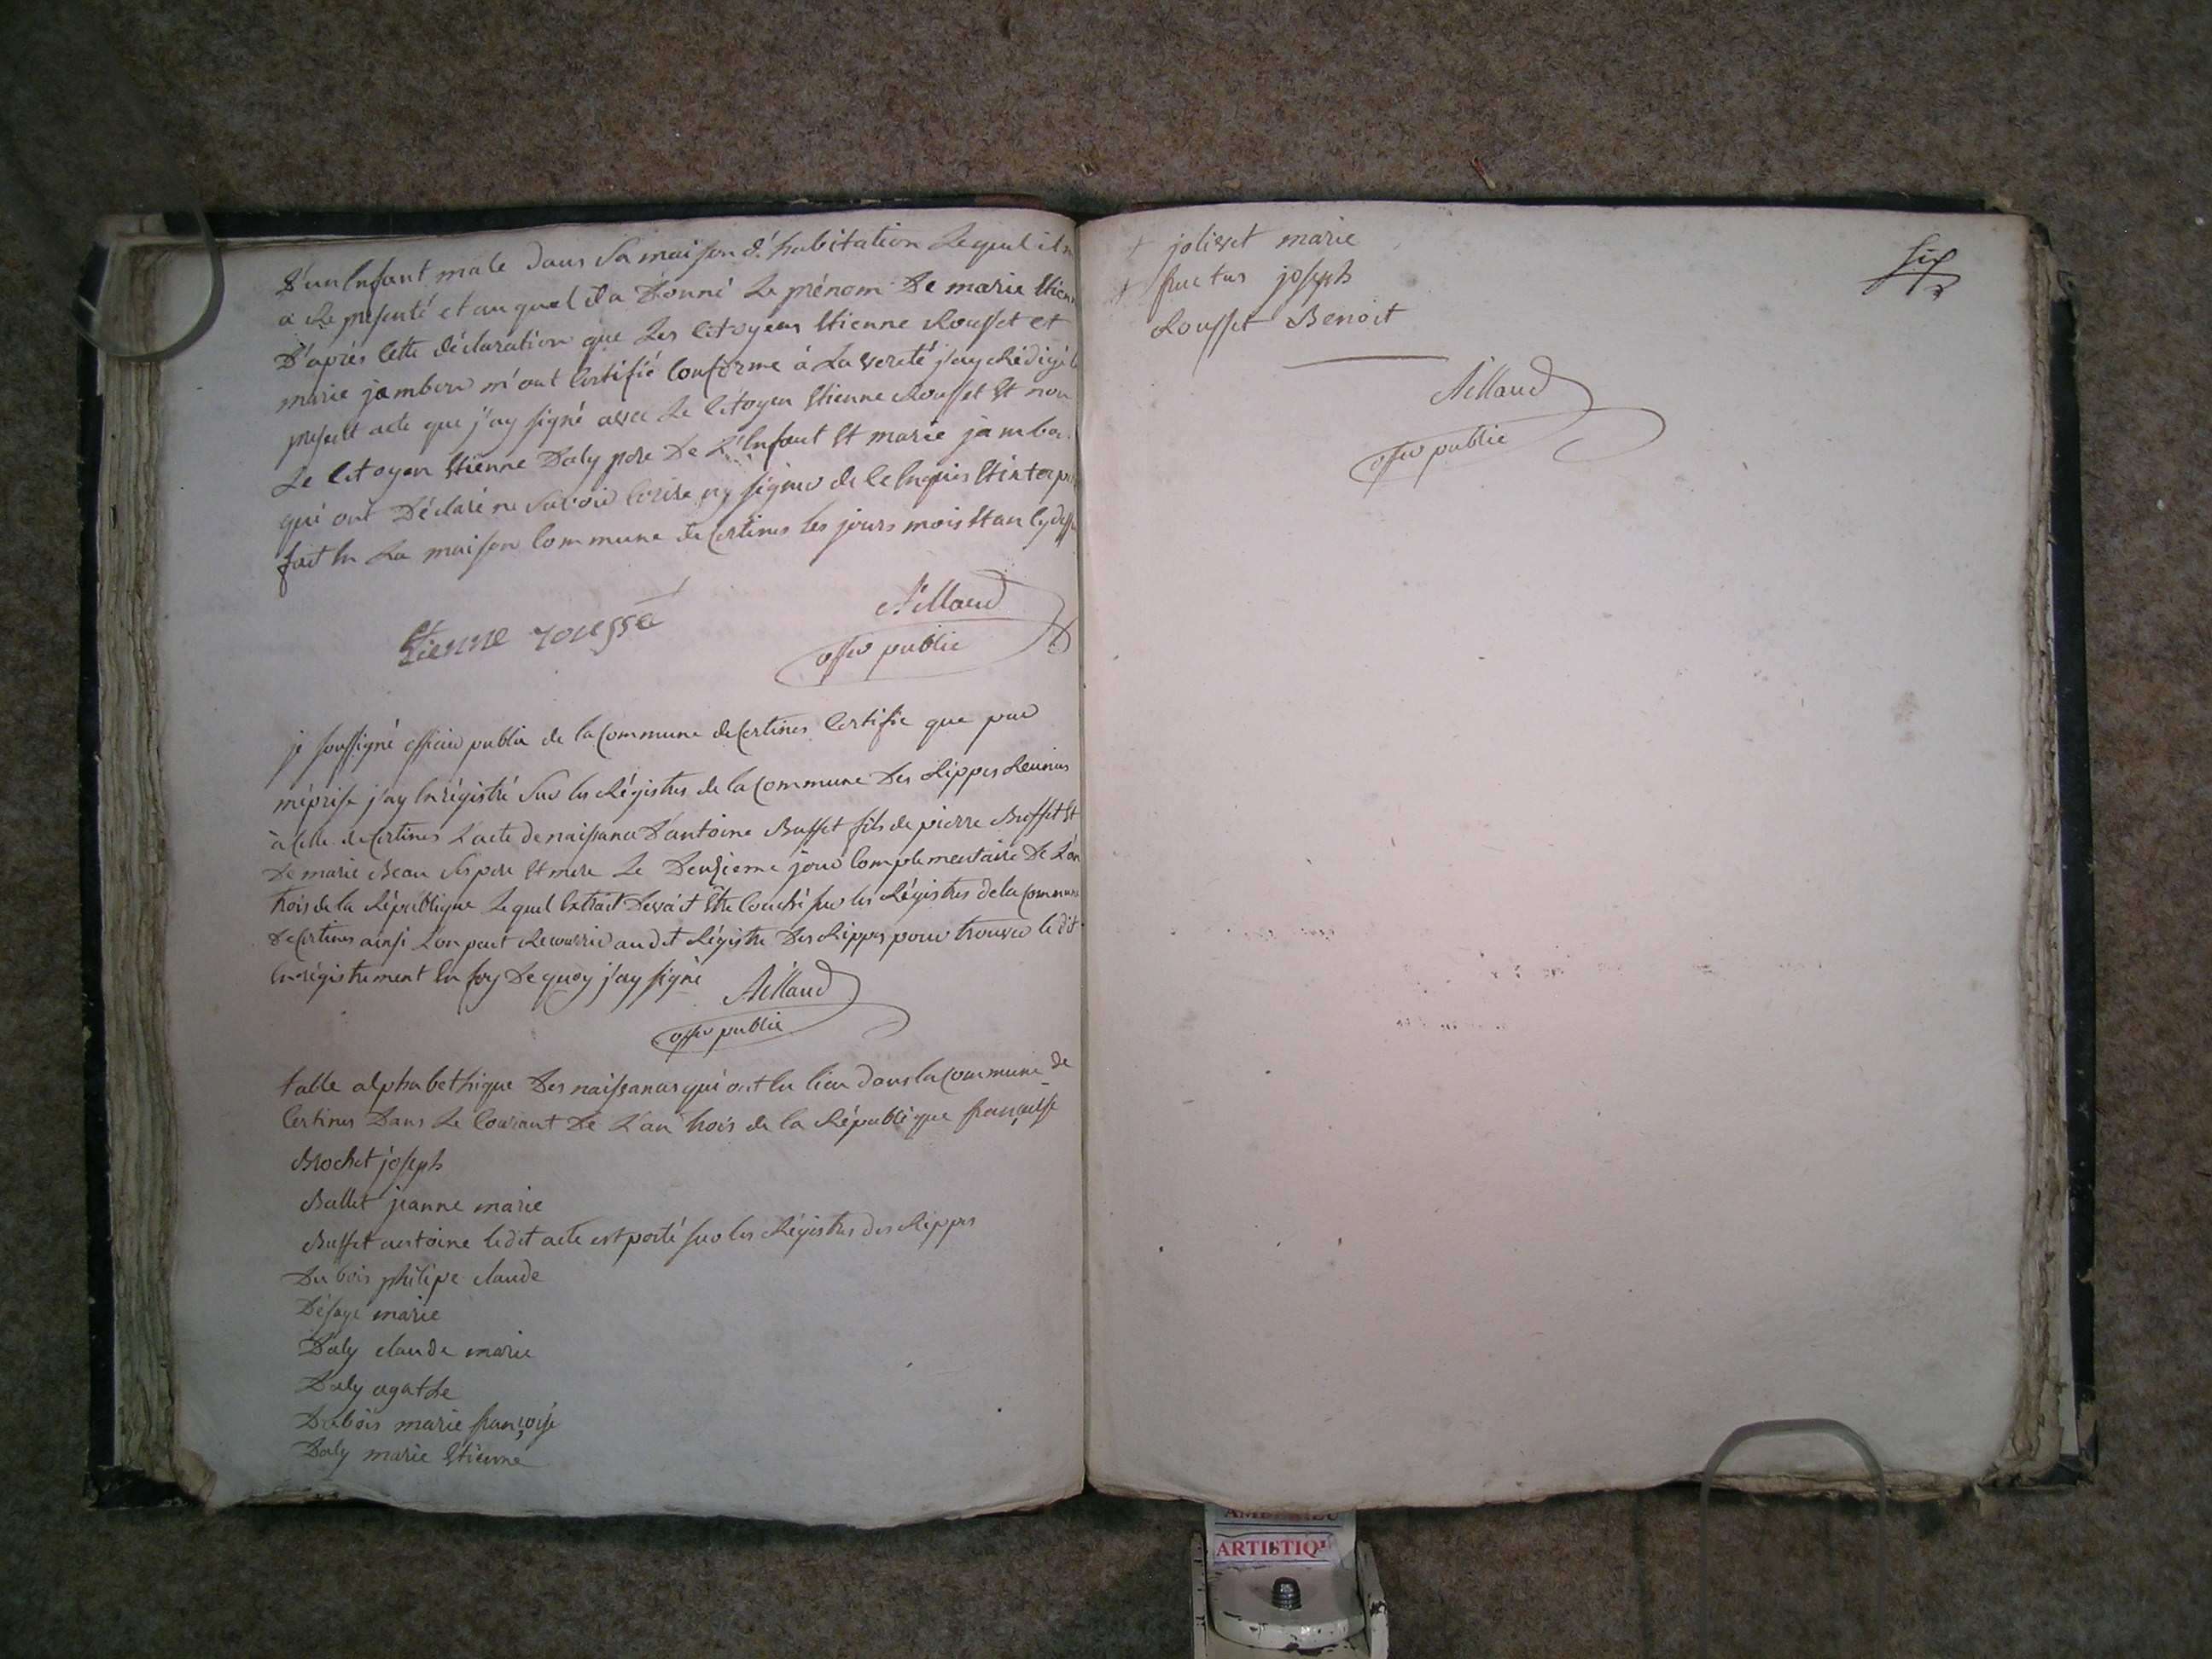 D'un Enfant male dans Sa maison d'habitation Lequel il m
a Représenté et au quel il a Donné Le prénom De marie Etien
D'après Cette déclaration que Les Citoyens Etienne Rousset et
marie jambon m'ont Certifié Conforme à La verité j'ay Rédigé le
présent acte que j'ay signé avec Le Citoyen Etienne Rousset Et non
Le Citoyen Etienne Daly pere De L'Enfant Et marie jambo
qui ont Déclaré ne Savoir Ecrire ny signer de ce Enquis Et interpe
fait En La maison Commune de Certines Les jours mois Et an Cy dessu
Etienne roussé
Aillaud
offer public
je soussigné officier public de la Commune de Certines Certifie que par
méprise j'ay Enrégistré Sur les Régistres de la Commune Des Rippes Reunies
à Celle de Certines L'acte de naissance D'antoine Buffet fils de pierre Buffet Et
De marie Beau Ses pere Et mere Le Deuxieme jour Complementaire De L'an
trois de la République Lequel Extrait Devait Etre Couché sur les Régistres de la Commune
De Certines ainsi L'on peut Recourrir au dit Régistre Des Rippes pour trouver le dit
Enrégistrement En foy De quoy j'ay signé
Aillaud
offer public
table alphabethique Des naissances qui ont Eu lieu dans la Commune de
Certines Dans Le Courant De L'an trois de la République française
Brochet joseph
Ballet jeanne marie
Buffet antoine le dit acte est porté sur les Régistres des Rippes
Du bois philipe claude
Défaye marie
Daly claude marie
Daly agathe
Dubois marie françoise
Daly marie Etienne
jolivet marie
fructus joseph
Rousset Benoit
Aillaud
offer public
six
ARTISTIQ